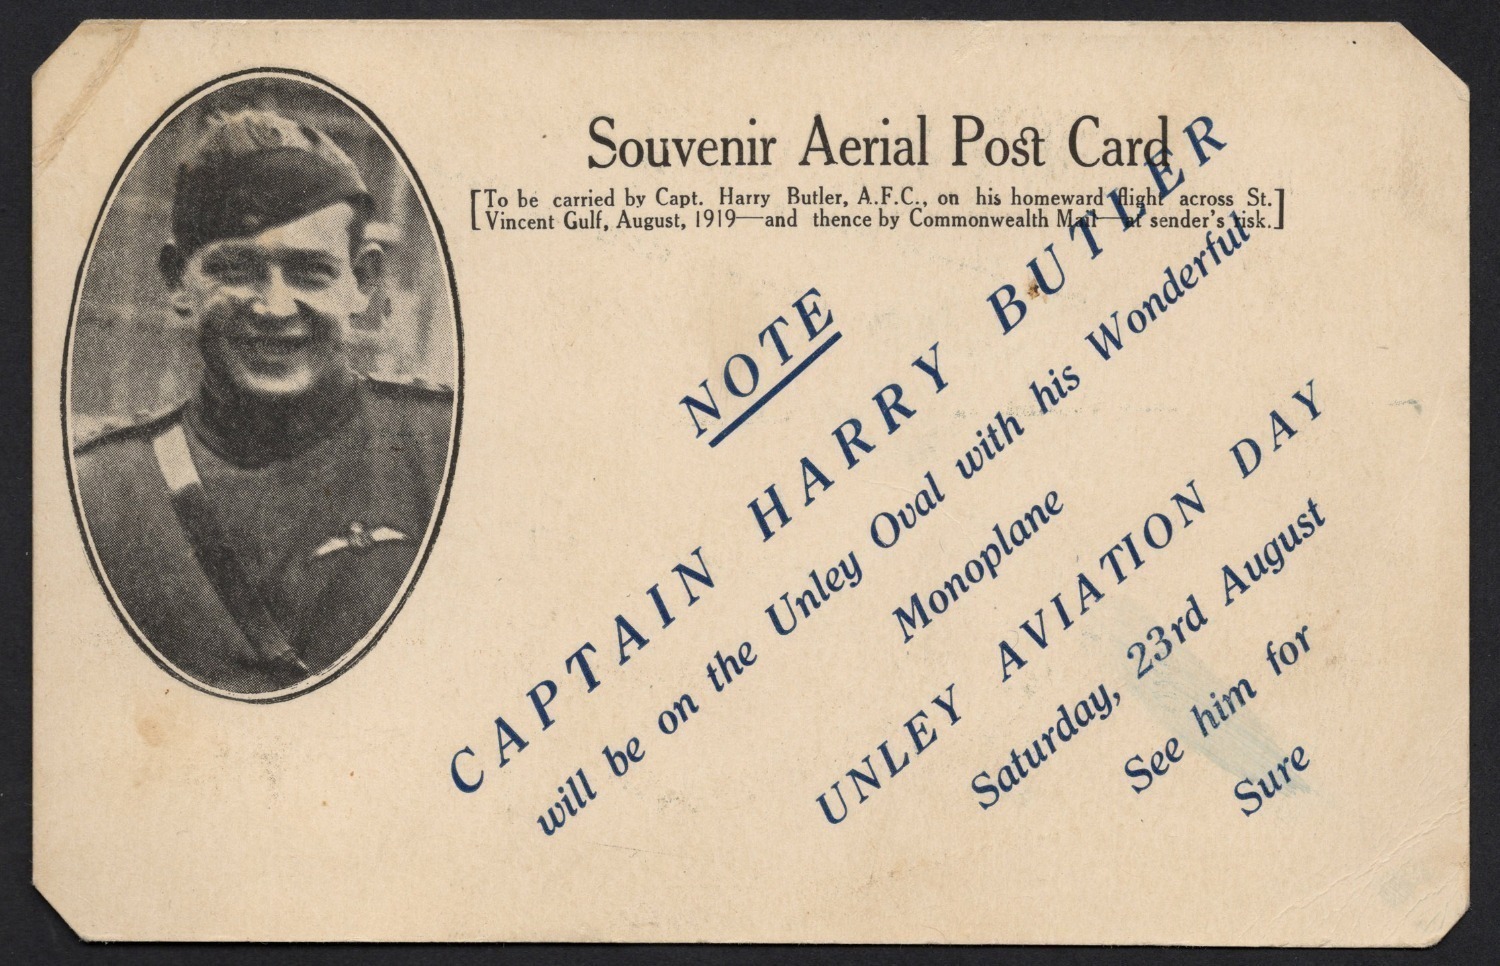 Souvenir Aerial Post Card
[To be carried by Capt. Harry Butler, A.F.C., on his homeward flight across St.
Vincent Gulf, August, 1919—and thence by Commonwealth Mail—at sender's risk.]
NOTE
CAPTAIN HARRY BUTLER
will be on the Unley Oval with his Wonderful
Monoplane
UNLEY AVIATION DAY
Saturday, 23rd August
See him for
Sure